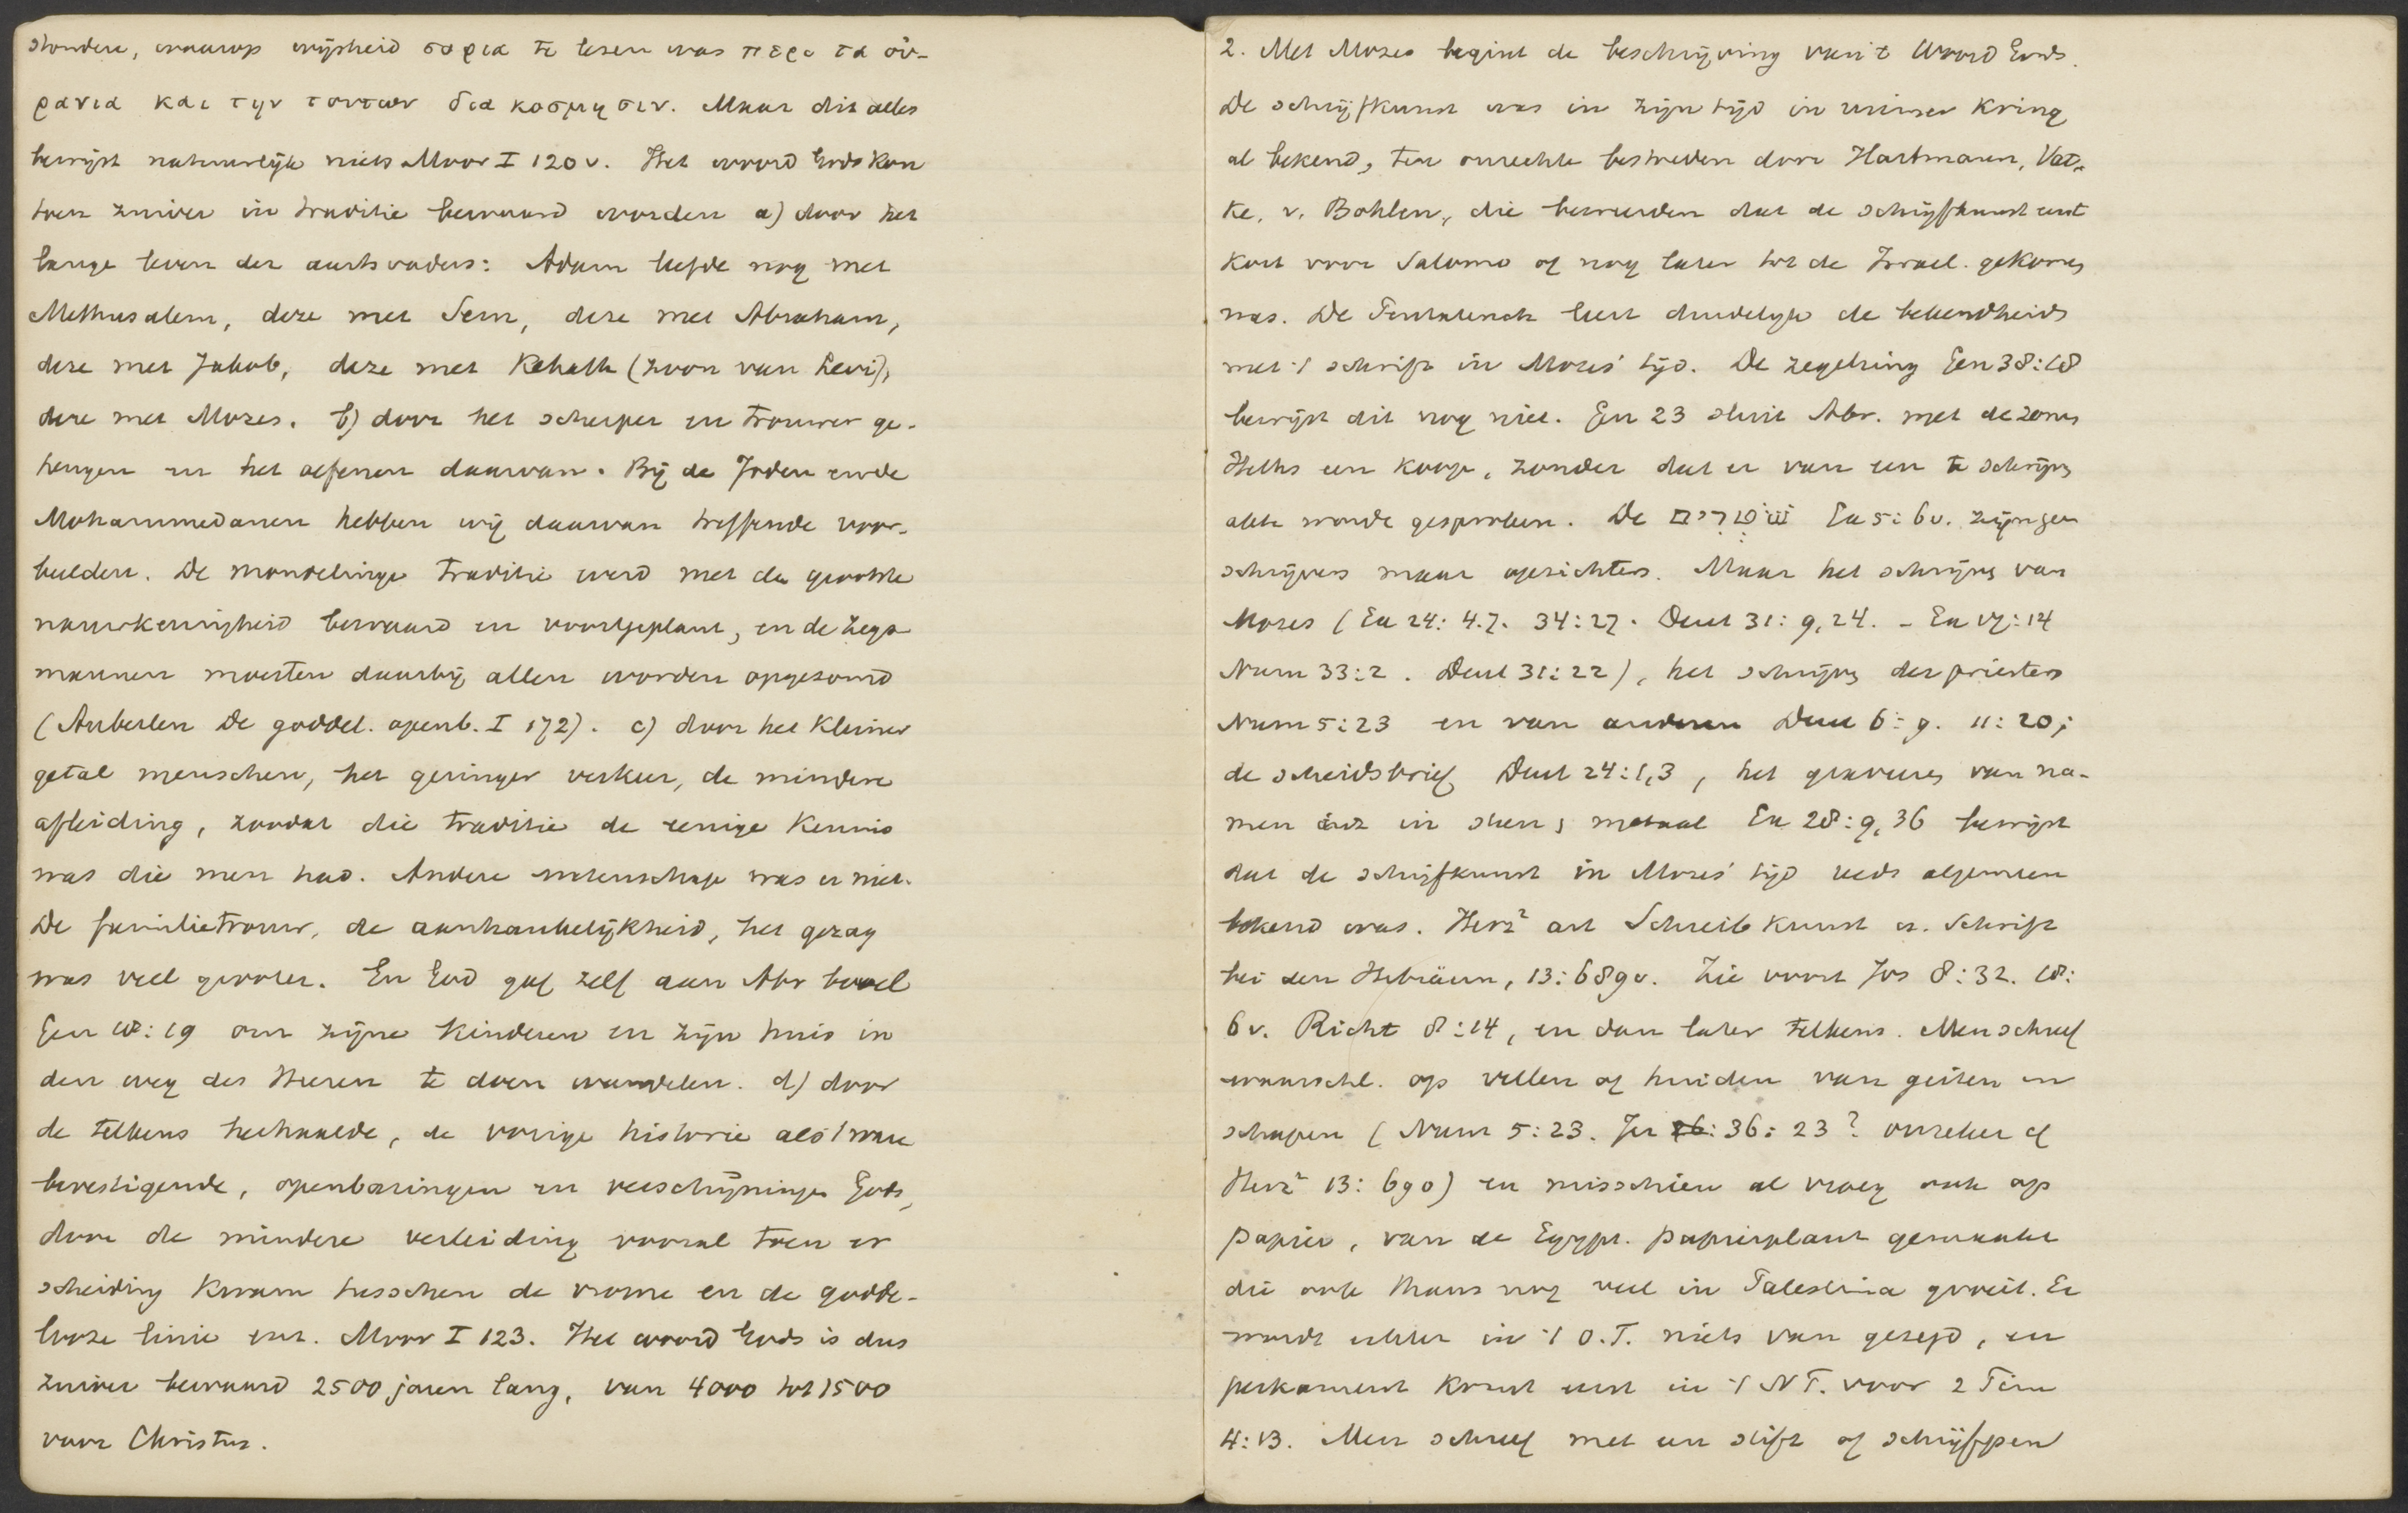 stonden, waarop wijsheid σοφια te lezen was περι τα οὐ-
ρανια και την τουτων διακοσμησιν. Maar dit alles
bewijst natuurlijk niets Moor I 120 v. Het woord Gods kon
toen zuiver in traditie bewaard worden a) door het
lange leven der aartsvaders: Adam leefde nog met
Methusalem, deze met Sem, deze met Abraham,
deze met Jakob, deze met Kehath (zoon van Levi),
deze met Mozes. b) door het scherper en trouwer ge-
heugen en het oefenen daarvan. Bij de Joden en de
Mohammedanen hebben wij daarvan treffende voor-
beelden. De mondelinge traditie werd met de grootste
nauwkeurigheid bewaard en voortgeplant, en de zegs-
mannen moesten daarbij allen worden opgesomd
(Auberlen De goddel. openb. I 172). c) door het kleiner
getal menschen, het geringer verkeer, de mindere
afleiding, zoodat die traditie de eenige kennis
was die men had. Andere wetenschap was er niet.
De familietrouw, de aanhankelijkheid, het gezag
was veel grooter. En God gaf zelf aan Abr bevel
Gen 18:19 om zijne kinderen en zijn huis in
den weg des Heeren te doen wandelen. d) door
de telkens herhaalde, de vorige historie als 't ware
bevestigende, openbaringen en verschijningen Gods,
door de mindere verleiding vooral toen er
scheiding kwam tusschen de vrome en de godde-
looze linie enz. Moor I 123. Het woord Gods is dus
zuiver bewaard 2500 jaren lang, van 4000 tot 1500
voor Christus.
2. Met Mozes begint de beschrijving van 't Woord Gods.
De schrijfkunst was in zijn tijd in ruimer kring
al bekend, ten onrechte bestreden door Hartmann, Vat-
ke, v. Bohlen, die beweerden dat de schrijfkunst eerst
kort voor Salomo of nog later tot de Israel. gekomen
was. De Pentateuch leert duidelijk de bekendheid
met 't schrift in Mozes' tijd. De zegelring Gen 38:18
bewijst dit nog niet. Gen 23 sluit Abr. met de zonen
Heths een koop, zonder dat er van een te schrijven
akte wordt gesproken. De שׁטרים Ex 5:6v. zijn geen
schrijvers maar opzichters. Maar het schrijven van
Mozes (Ex 24:4.7. 34:27. Deut 31:9,24. - Ex 17:14
Num 33:2. Deut 31:22), het schrijven der priesters
Num 5:23 en van anderen Deut 6:9. 11:20;
de scheidsbrief Deut 24:1,3, het graveeren van na-
men in steen metaal Ex 28:9,36 bewijst
dat de schrijfkunst in Mozes' tijd reeds algemeen
bekend was. Herz² art Schreibkunst u. Schrift
bei den Hebräern, 13:689v. Zie voort Jos 8:32. 18:
6v. Richt 8:14, en dan later telkens. Men schreef
waarschl. op vellen of huiden van geiten en
schapen (Num 5:23. Jer 26: 36:23? onzeker cf
Herz² 13:690) en misschien al vroeg ook op
papier, van de Egypt. papierplant gemaakt
die ook thans nog veel in Palestina groeit. Er
wordt echter in 't O.T. niets van gezegd, en
perkament komt eerst in 't NT. voor 2 Tim
4:13. Men schreef met een stift of schrijfpen